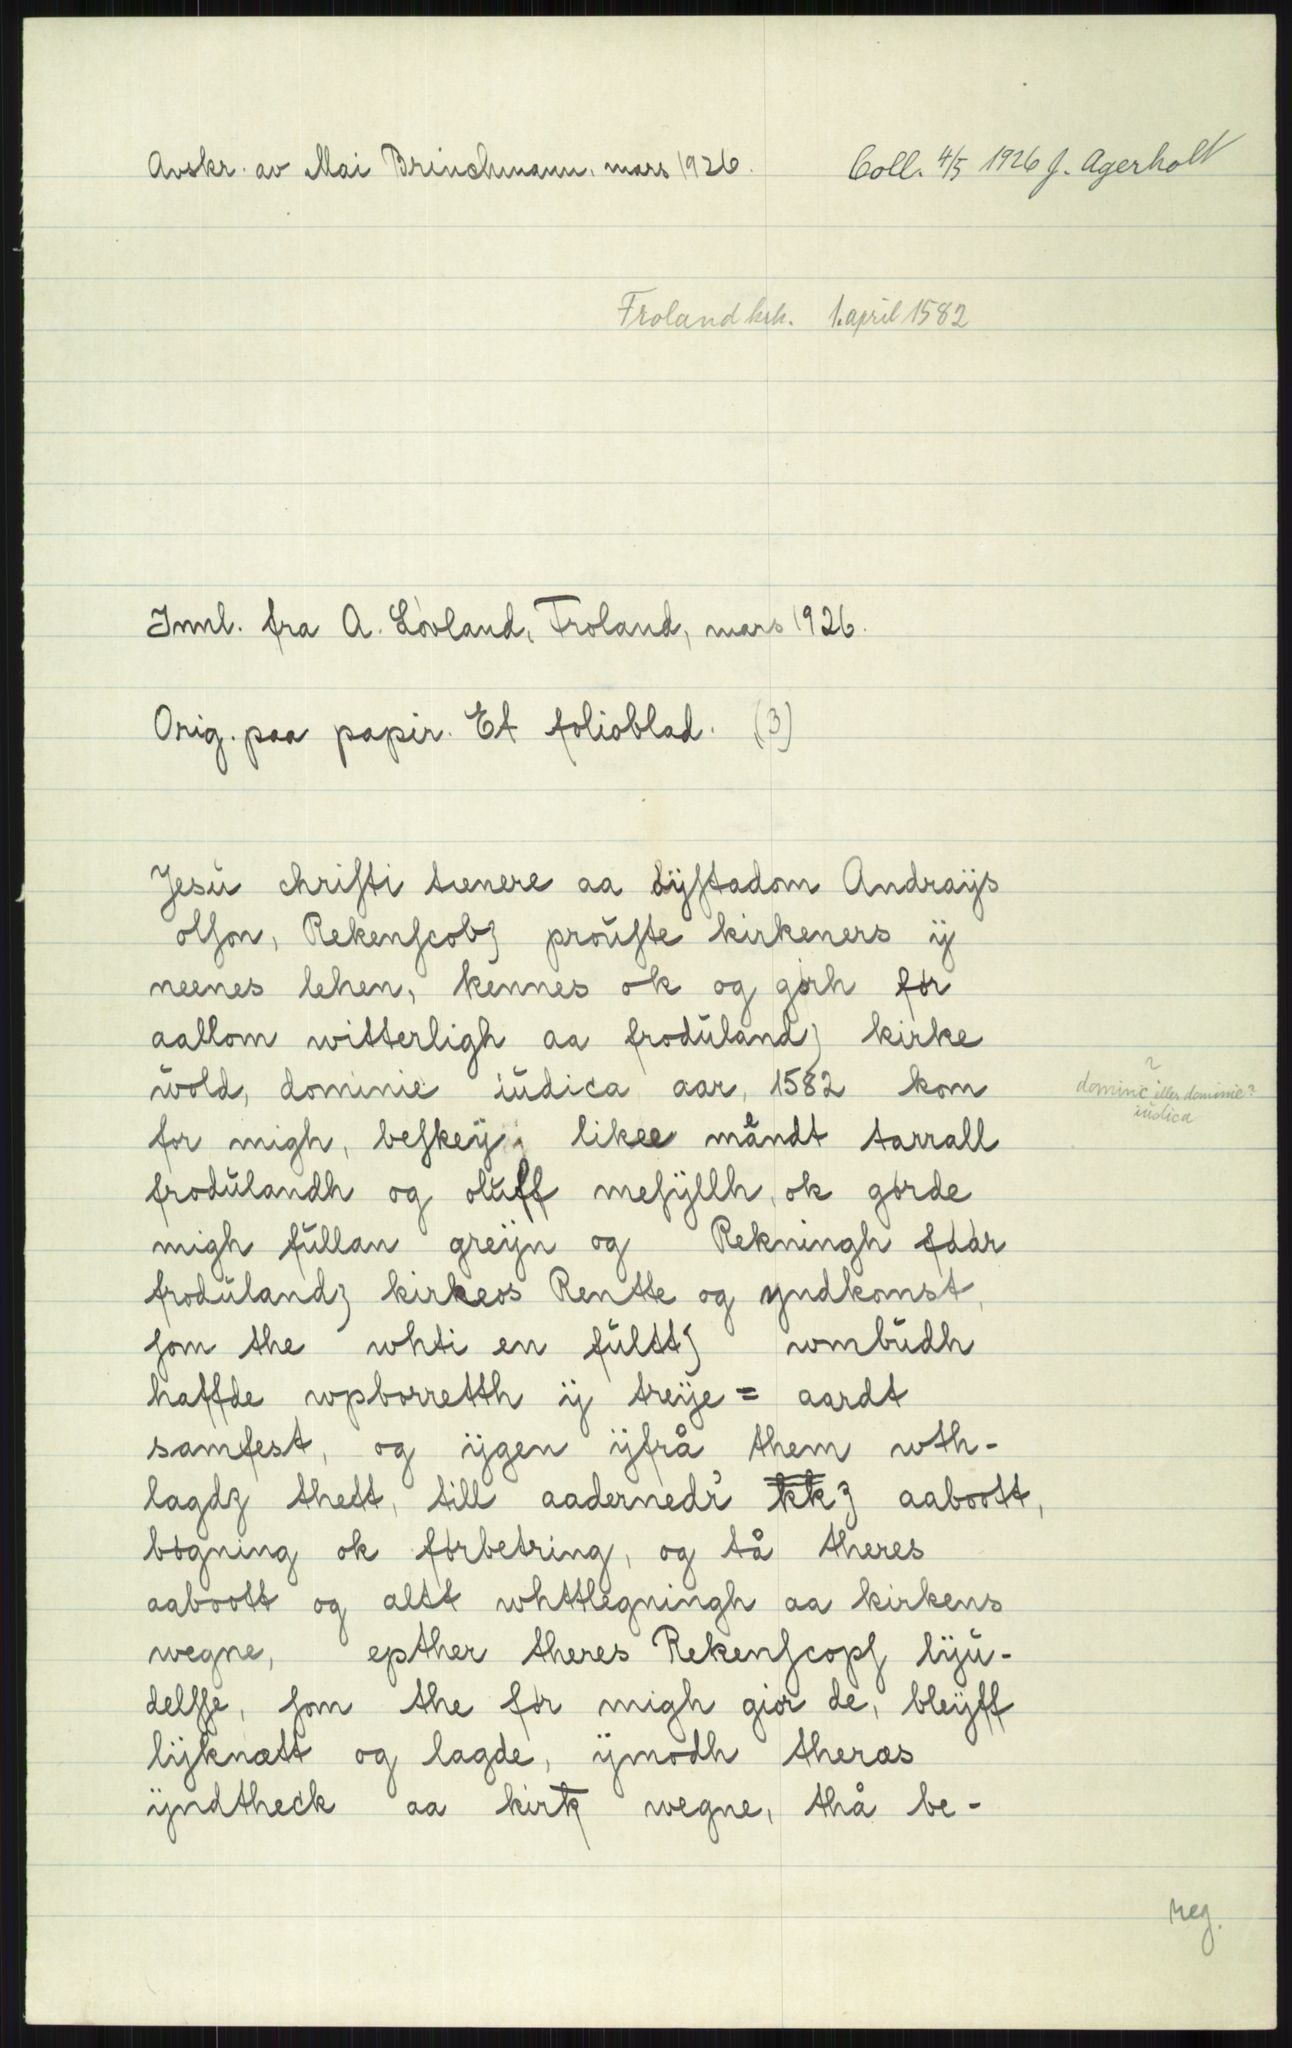 Avskr. av Mai Brinchmann, mars 1926.
Coll. 4/5 1926 J. Agerholt
Froland kirk. 1. april 1582
Innl. fra A. Lövland, Froland, mars 1926.
Orig. paa papir. Et folioblad. (3)
Jesu chriſti tienere aa ÿſtadom Andraÿs
olſon, Rekenſcobꝫ prouſte kirkeners ÿ
neenes lehen, kennes ok og gørh før
aallom witterligh aa frodulandꝫ kirke
wold, dominie iudica aar, 1582 kom
for migh, beſkeÿ likee måndt tarrall
frodulandh og oluff meſÿllh, ok gørde
migh fullan greÿn og Rekningh føør
frodulandꝫ kirkeos Rentte og yndkomst,
ſom the whti en fulttꝫ wmbudh
haffde wpborretth ÿ treÿe = aardt
samfest, og ÿgen ÿfrå them wth-
lagdꝫ thett, till aadernedr kkꝫ aaboott,
bøgning ok førbetring, og tå theres
aaboott og altt whttlegningh aa kirkens
wegne, epther theres Rekenſcopſ lÿu-
delſſe, ſom the før migh giør de, bleÿff
lÿknætt og lagde, ÿmodh theræs
ÿndtheck aa kirk wegne, thå be-
dominc eller dominie?
?
iudica
reg.